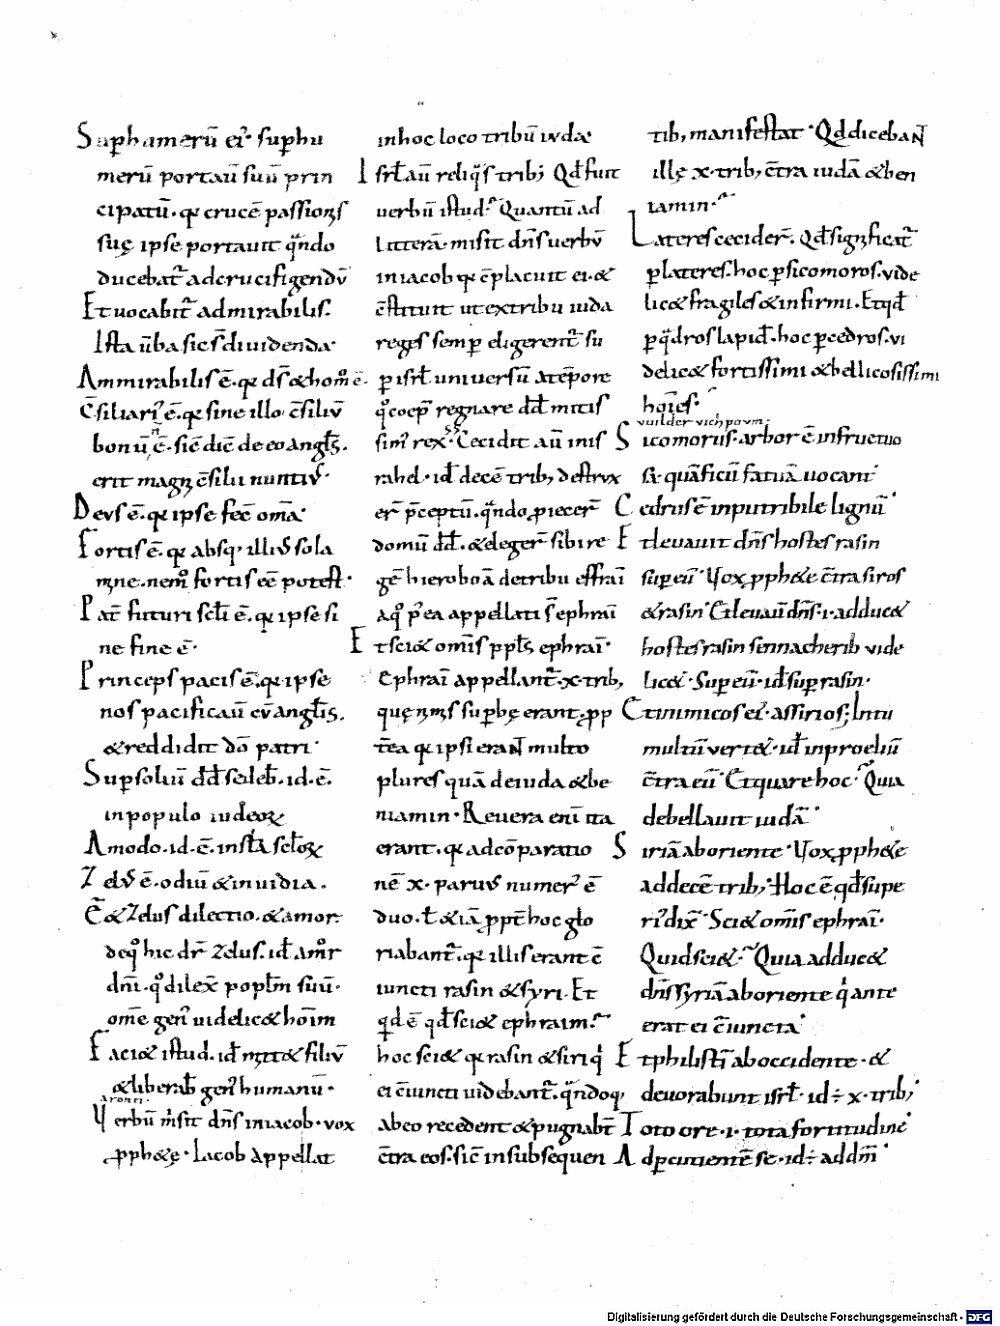 Suphumerū eiꝰ. suphu
merū portaū suū prin
cipatū. qꝛ crucē passionis
suę ipse portauit qn̄do
ducebat̄ ad crucifigendū
Et uocabit̄ admirabilis.
Ista ūba sic s̄ diuidenda.
Ammirabilis ē. qꝛ ds̄ & homo ē.
C̄siliariꝰ ē. qꝛ sine illo c̄siliū
bonū n̄ ē. sic̄ dic̄ de eo angl̄s.
erit magni c̄silii nuntius.
Deus ē. qꝛ ipse fec̄ om̄a.
Fortis ē. qꝛ absq; illiꝰ sola
mne. nemo fortis ēē potest.
Pat̄ futuri sc̄li ē. qꝛ ipse si
ne fine ē.
Princeps pacis ē. qꝛ ipse
nos pacificau̅ euanglīs.
& reddidit dō patri.
Sup soliū dd̄ sedeb̄. id. ē.
in populo iudeoꝝ
Amodo. id. ē. in sta sc̄loꝝ
Zelꝰ ē. odiū & inuidia.
Ē & zelus dilectio. & amor
deq; hic dr̄ zelus. id̄ amor
dn̄i. qo dilex̄ poplm̄ suū.
om̄e genꝰ uidelic& hoīm
Faci& istud. id̄ mitt& filiū
& liberab̄ genꝰ humanū.
Verbū misit dn̄s in iacob. vox
pph&ę. Iacob appellat
in hoc loco tribū iuda.
Isrl̄ aū reliqs̄ trib; Qd̄ fuit
uerbū istud. Quantū ad
litterā. misit dn̄s uerbū
in iacob qꝛ c̄placuit ei. &
c̄stituit ut ex tribu iuda
reges semp eligerent̄ su
p isrl̄ uniuersū a tēpore
qo coep̄ regnare dd̄ mitis
simꝰ rex. Cecidit aū in is
rahel. id̄ decē trib; destrux
er̄ p̄ceptū. qn̄do piecer̄
domū dd̄. & eleger̄ sibi re
gē hieroboā de tribu effrai
a qo p̄ ea appellati s̄ ephraī
Et sci& omīs ppls̄ ephraī.
Ephraī appellant̄. x. trib;
quę nimis supbę erant. pp
t̄ea qꝛ ipsi erant multo
plures quā de iuda & be
niamin. Reuera enī ita
erant. qꝛ ad cōparatio
nē x. paruus numerꝰ ē
duo. t̄ & iā ppt̄ hoc glo
riabant̄. qꝛ illis erant c̄
iuncti rasin & syri. Et
qd ē qd̄ sci& ephraim.
hoc sci& qꝛ rasin & siri qi
ei c̄iuncti uidebant̄. qn̄doq;
ab eo recedent & pugnabt̄
c̄tra eos. sic̄ in subsequen
tib; manifestat. Qd dicebant
illę x. trib; c̄tra iudā & ben
iamin.
Lateres cecider̄. Qd̄ significat̄
p lateres. hoc p sicomoros. vide
lic& fragiles & infirmi. Et qd̄
p qdros lapid̄. hoc p cedros. vi
delic& fortissimi & bellicosissimi
hoīes.
vuilder vichpoum.
Sicomorus. arbor ē infructuo
sa. quā ficū fatuā uocant
Cedrus ē inputribile lignū.
Et leuauit dn̄s hostes rasin
sup eū. Vox pph&e c̄tra siros
& rasin. Et leuau̅ dn̄s. i. adduc&
hostes rasin sennacherib vide
lic&. Sup eū. id̄ sup rasin.
Et inimicos eiꝰ. assirios. In tu
multū vert&. id̄ in proeliū
c̄tra eū. Et quare hoc. Quia
debellauit iudā.
Siriā ab oriente. Vox pph&e
ad decē trib; Hoc ē qd̄ supe
riꝰ dix̄. Sci& omīs ephraī.
Quid sci&. Quia adduc&
dn̄s syriā ab oriente qi ante
erat ei c̄iuncta.
Et philistī ab occidente. &
deuorabunt isrl̄. id ÷ x. trib;
Toto ore. i. tota fortitudine
Ad pcutientē se. id ÷ ad dm̄
Digitalisierung gefördert durch die Deutsche Forschungsgemeinschaft - DFG